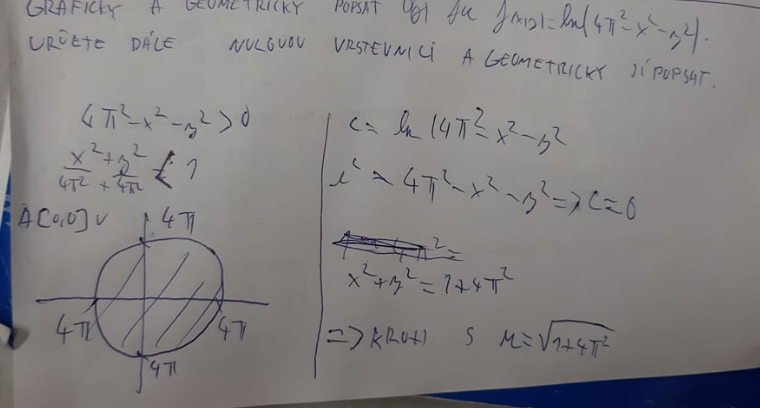 GRAFICKY A GEOMETRICKY POPSAT Df fce f(x,y)=ln(4π²-x²-y²).
URČETE DÁLE NULOVOU VRSTEVNICI A GEOMETRICKY JI POPSAT.
4π²-x²-y²>0
x²/4π² + y²/4π² < 1
A[0,0] v
4π
4π 4π
4π
c = ln(4π²-x²-y²
e^c = 4π²-x²-y² => c=0
x²+y²=1+4π²
=> KRUH S r=√1+4π²